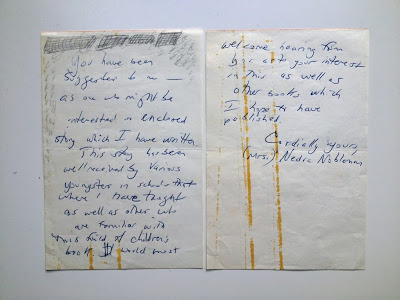 You have been
suggested to me —
as one who might be
interested in enclosed
story which I have written.
This story has been
well received by various
youngster in schools that
where I have taught
as well as other who
are familiar with
this kind of children's
book. I would most
welcome hearing from
you as to your interest
in this as well as
other books which
I hope to have
published.
Cordially yours,
(Mrs.) Nedra